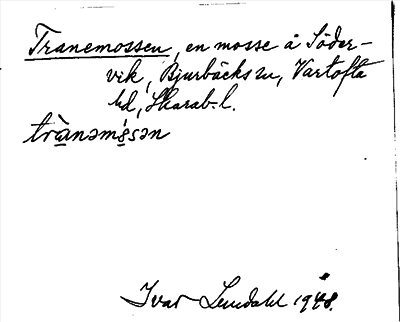 Tranemossen, en mosse å Söder-
vik, Bjurbäcks sn, Vartofta
hd, Skarab. l.
trànəmɵ̀sən
Ivar Lundahl 1948.